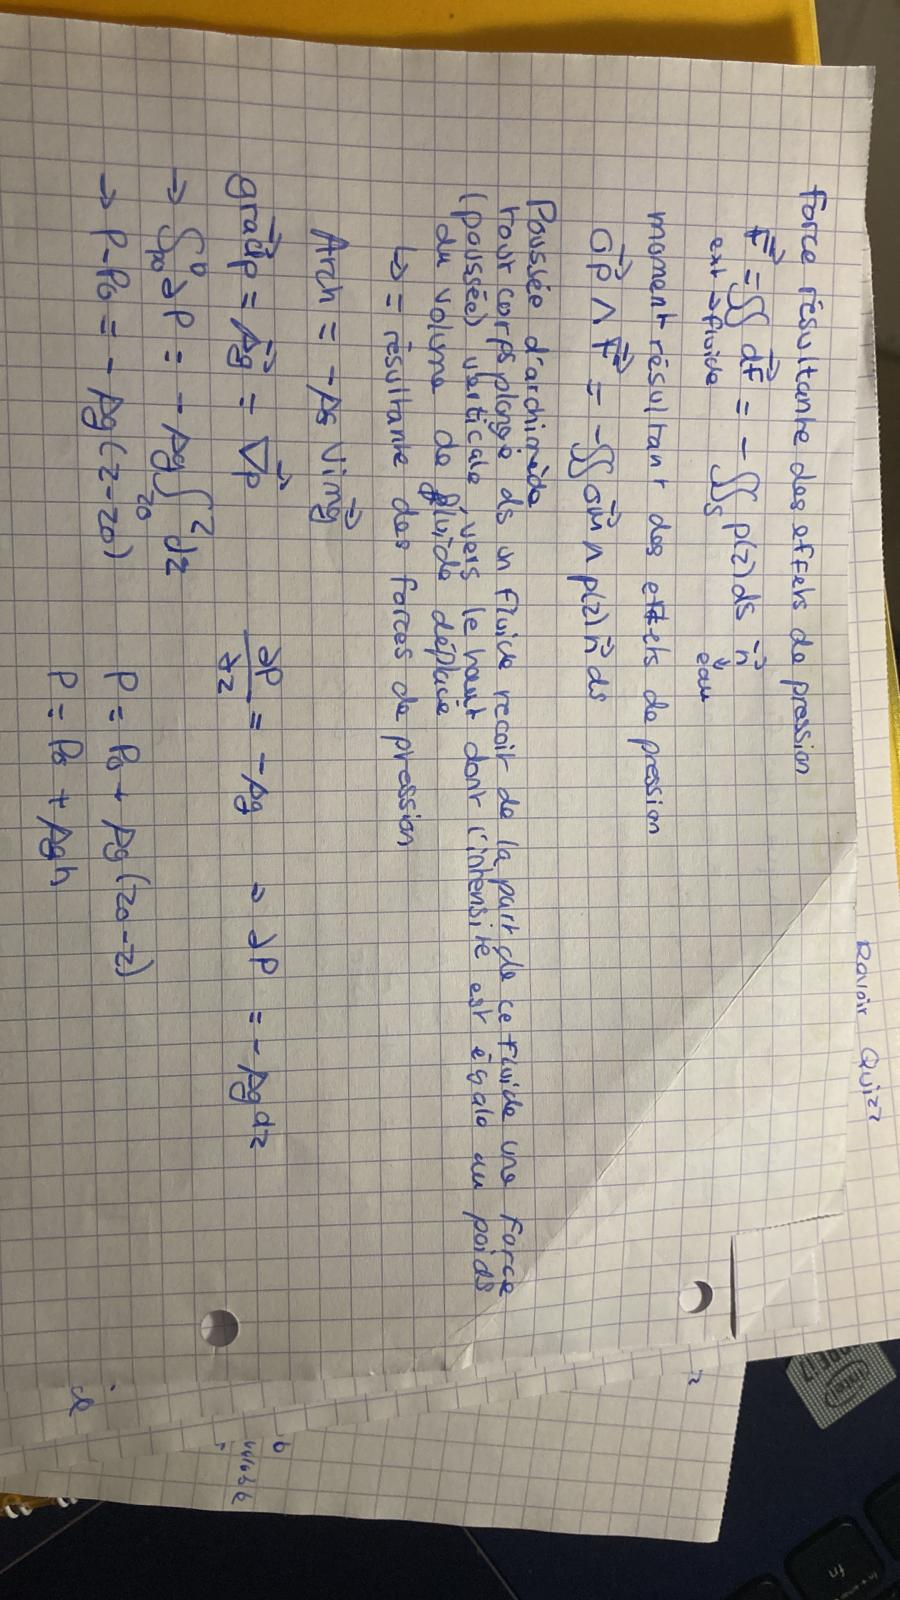 Revoir Quizz
Force résultante des effets de pression
F⃗ = ∬ dF⃗ = - ∬s p(z) ds n⃗
ext → fluide
eau
moment résultant des effets de pression
OP⃗ ∧ F⃗ = - ∬ OM⃗ ∧ p(z) n⃗ ds
Poussée d'archimède
Tout corps plongé ds un fluide recoit de la part de ce fluide une force
(poussée) verticale, vers le haut dont l'intensité est égale au poids
du volume de fluide déplacé
↳ = résultante des forces de pression
Arch = - ρs Vim g⃗
grad⃗p = ρg⃗ = ∇⃗p
∂P/∂z = - ρg → ∂P = - ρg dz
→ ∫p0^p ∂P = - ρg ∫z0^z dz
→ P - P0 = - ρg (z - z0)
P = P0 + ρg (z0 - z)
P = P0 + ρgh